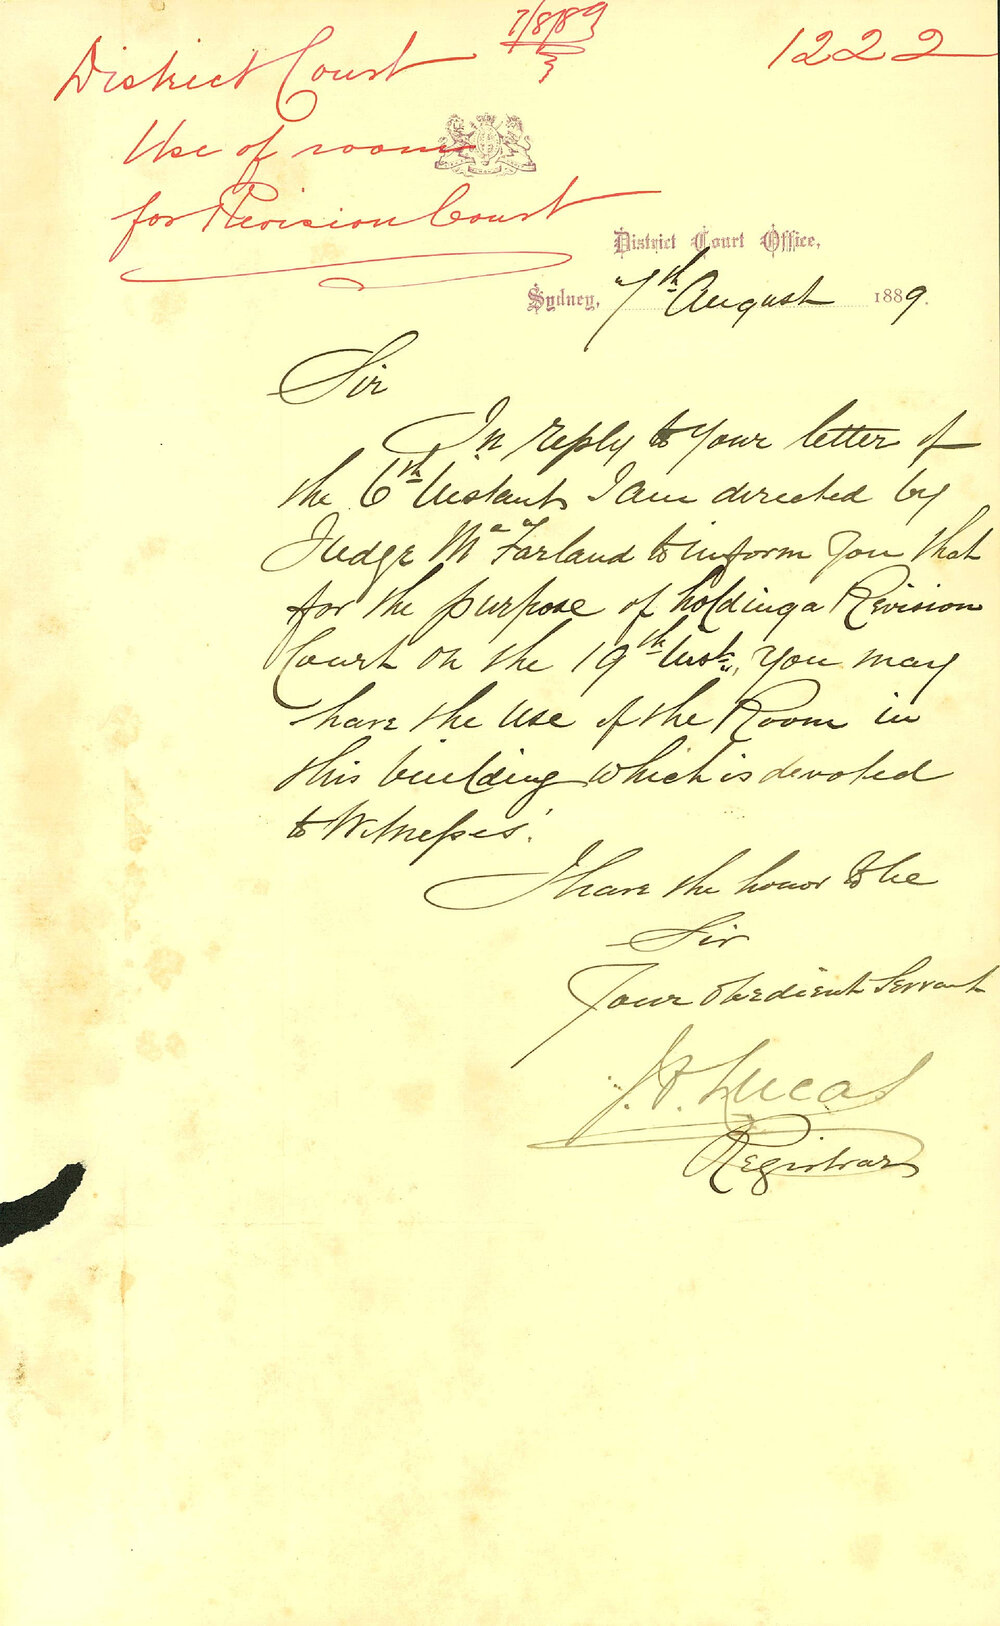 7/8/89
3
1222
District Court
Use of room
for Revision Court
District Court Office,
Sydney, 7th August 1889.
Sir
In reply to your letter of
the 6th Instant, I am directed by
Judge McFarland to inform you that
for the purpose of holding a Revision
Court on the 19th Inst., you may
have the use of the Room in
this building which is devoted
to Witnesses.
I have the honor to be
Sir
Your Obedient Servant
Lucas
Registrar